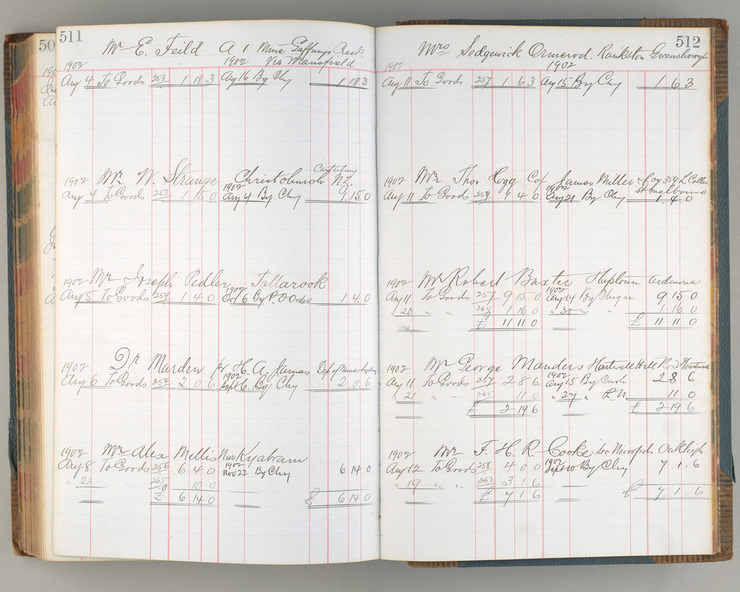 50
511
Mr E. Feild A 1 Mine Gaffneys Creek
1902 1902 Via Mansfield
Aug 4 To Goods 253 1 18 3 Aug 16 By Chq 1 18 3
Mr W. Strange Christchurch Canterbury N.Z.
1902 1902
Aug 4 To Goods 253 1 15 0 Aug 4 By Chq 1 15 0
Mr Joseph Pedler Tallarook
1902 1902
Aug 5 To Goods 254 1 4 0 Oct 6 By P.O Order 1 4 0
Dr Marden pr H. A. James
1902 1902
Aug 6 To Goods 2 0 6 Sept 6 By Chq 2 0 6
Mr Alex Millis Kyabram
1902 1902
Aug 8 To Goods 256 6 4 0 Nov 22 By Chq 6 14 0
23 265 10 0
£ 6 14 0 £ 6 14 0
512
Mrs Sedgewick Ormerod Greensborough
1902 1902
Aug 11 To Goods 257 1 6 3 Aug 15 By Chq 1 6 3
Mr Thos Hogg C/o James Miller & Co 354 Collins St Melbourne
1902 1902
Aug 11 To Goods 1 4 0 Aug 21 By Chq 1 4 0
Mr Robert Baxter
1902 1902
Aug 11 To Goods 257 9 15 0 Aug 14 By 9 15 0
20 " " 1 16 0 " 1 16 0
£ 11 11 0 £ 11 11 0
Mr George Manders
1902 1902
Aug 11 To Goods 257 2 8 6 Aug 15 By Cash 2 8 6
" 21 11 0 " 27 " P.N. 11 0
£ 2 19 6 £ 2 19 6
Mr F. H. R Cooke Sec Necropolis Oakleigh
1902 1902
Aug 12 To Goods 258 4 0 0 Sept 10 By Chq 7 1 6
" 19 " " 3 1 6
£ 7 1 6 £ 7 1 6